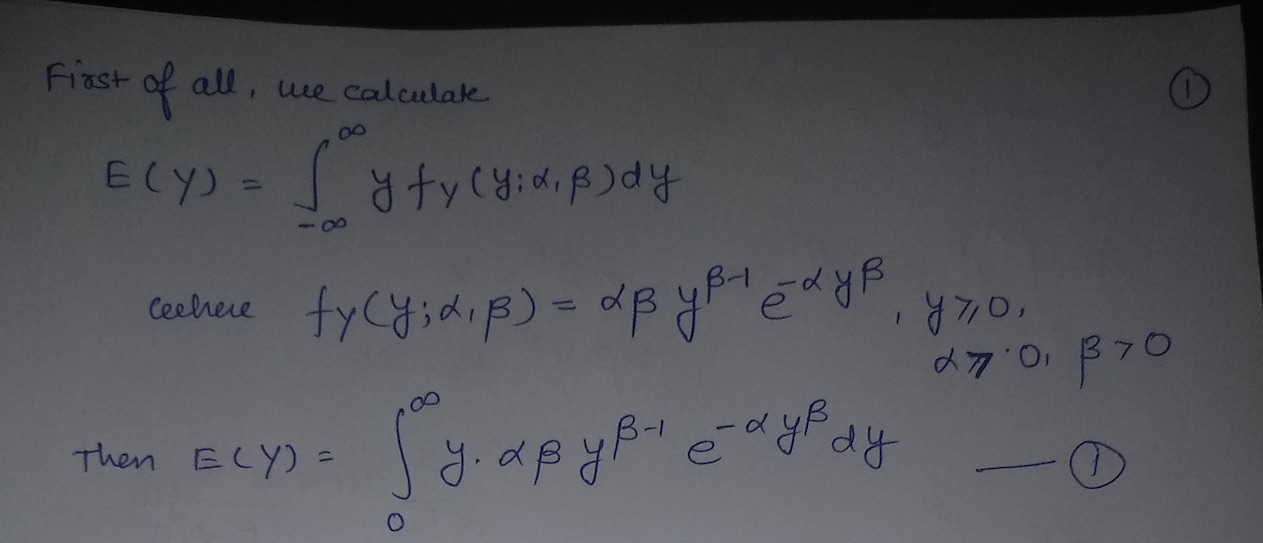 First of all, we calculate ①
E(Y) = ∫_{-∞}^{∞} y f_Y(y; α, β) dy
where f_Y(y; α, β) = αβ y^{β-1} e^{-αy^β}, y ≥ 0,
α > 0, β > 0
Then E(Y) = ∫_0^∞ y. αβ y^{β-1} e^{-αy^β} dy — ①